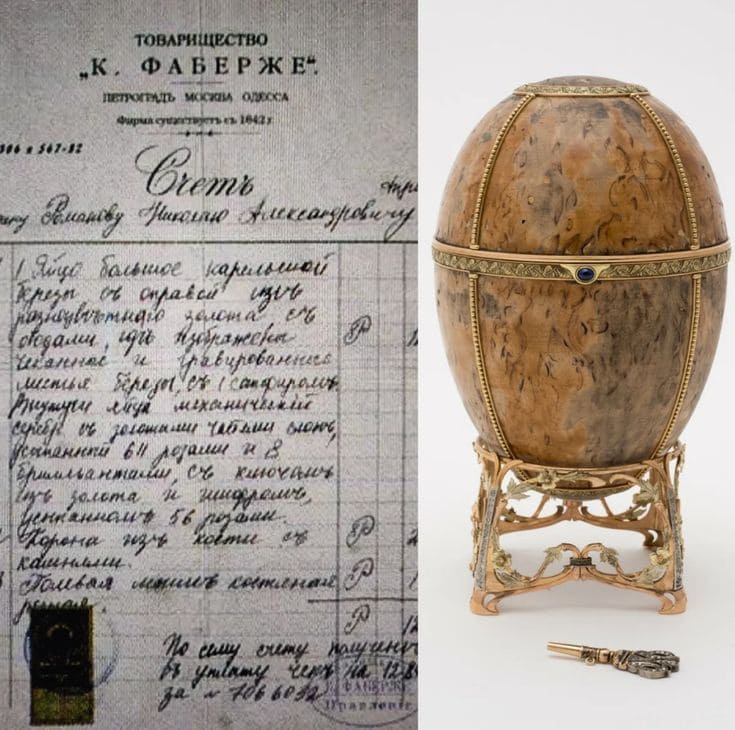 ТОВАРИЩЕСТВО
„К. ФАБЕРЖЕ“.
ПЕТРОГРАДЪ МОСКВА ОДЕССА
Фирма существуетъ съ 1842 г
Счетъ
Романову Николаю Александровичу
1 Яйцо большое карельской
березы съ оправой изъ
разноцвѣтнаго золота съ
ободами, гдѣ изображены
чеканное и гравированные
листья березы, съ 1 сапфиромъ.
Внутри яйца механический
серебр съ золотыми слонъ,
усыпанный 611 розами и 8
брилльантами, съ ключомъ
изъ золота и шифромъ,
усыпанномъ 56 розами.
Р
Корона изъ кости съ
камнями.
Р
костяная
Р
Р
По сему счету получено
въ уплату чекъ на
за № 706 6032
ФАБЕРЖЕ
Правленіе